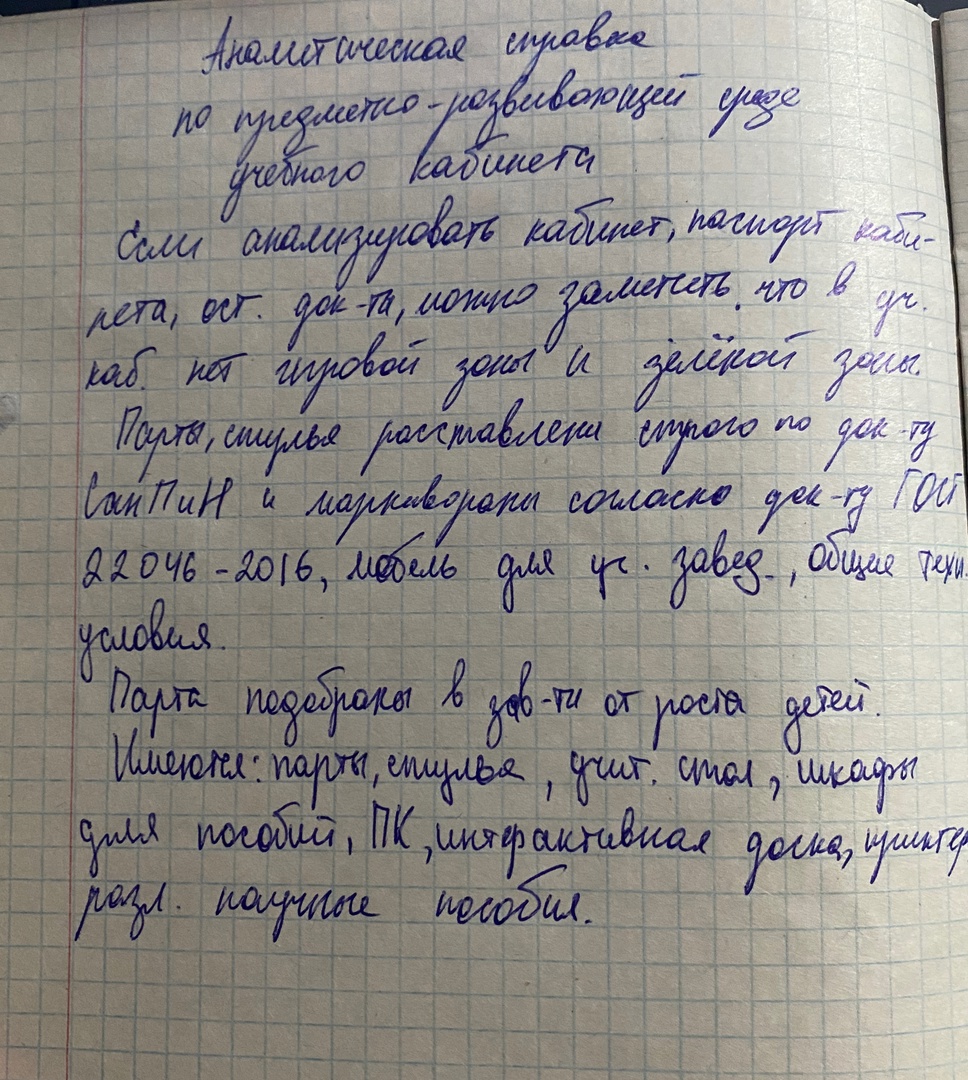 Аналитическая справка
по предметно-развивающей среде
учебного кабинета
Если анализировать кабинет, паспорт каби-
нета, ост. док-та, можно заметить, что в уч.
каб. нет игровой зоны и зелёной зоны.
Парты, стулья расставлены строго по док-ту
СанПиН и маркированы согласно док-ту ГОСТ
22046-2016, мебель для уч. завед., общие техн.
условия.
Парта подобраны в зав-ти от роста детей.
Имеются: парты, стулья, учит. стол, шкафы
для пособий, ПК, интерактивная доска, принтер
разл. научные пособия.